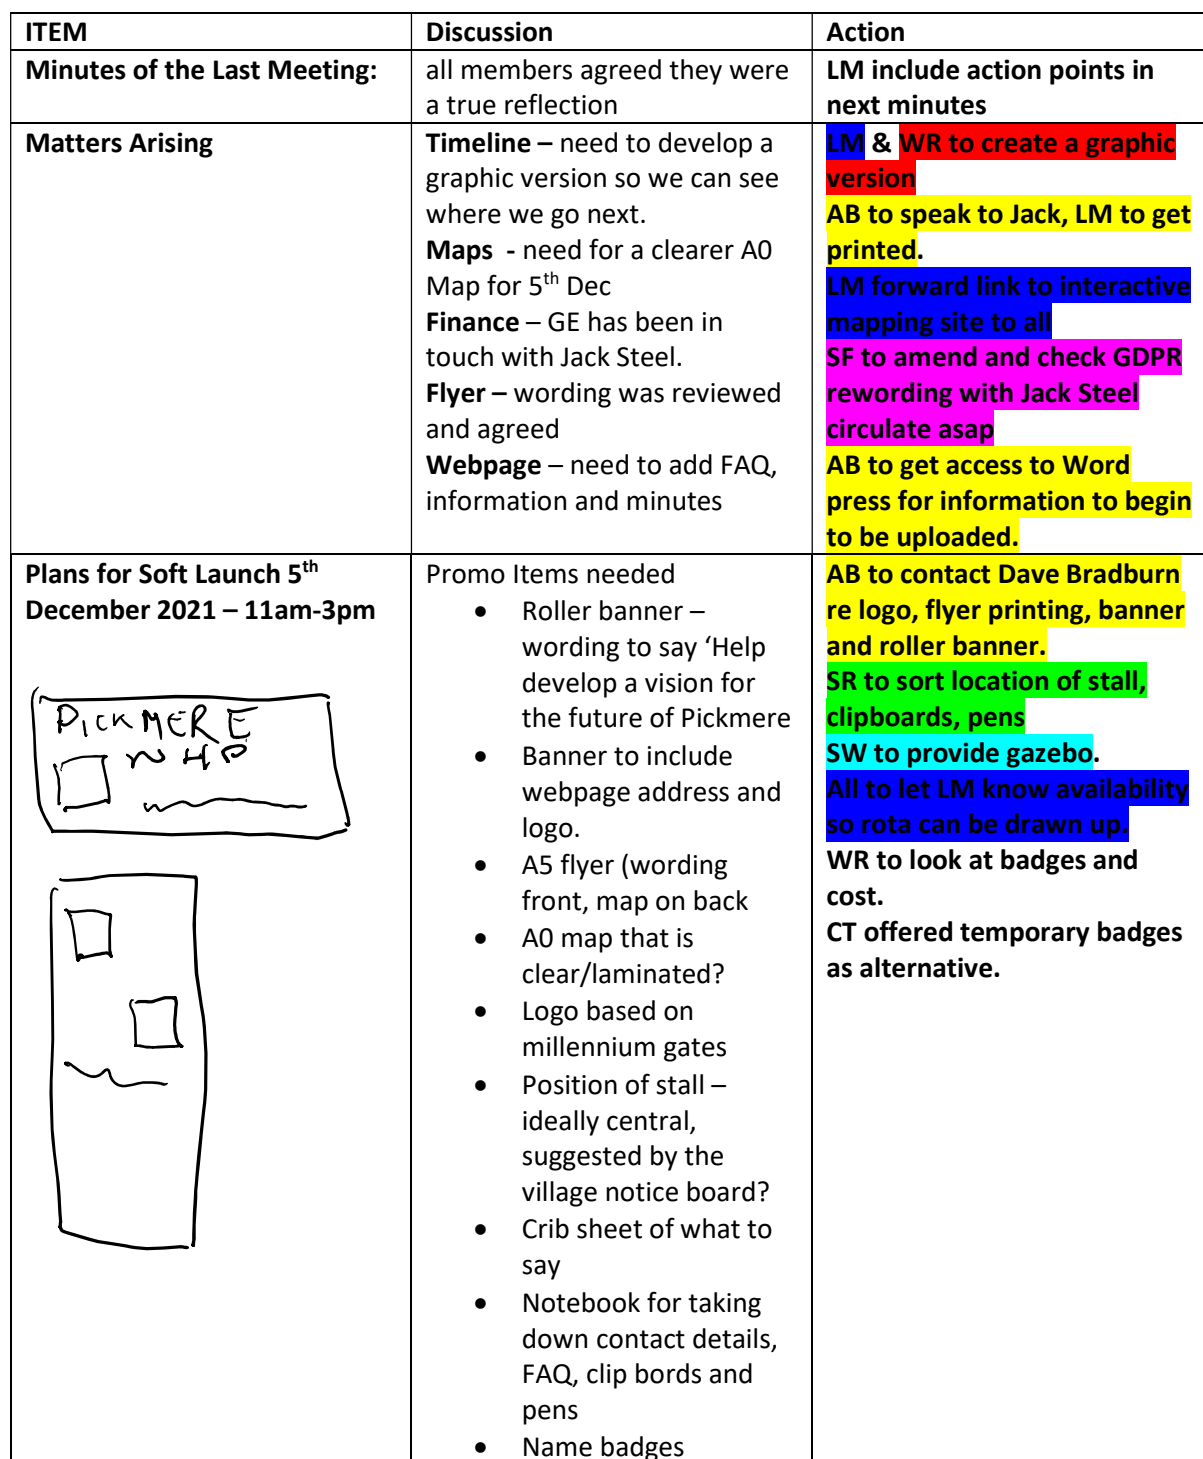 ITEM
Discussion
Action
Minutes of the Last Meeting:
all members agreed they were
a true reflection
LM include action points in
next minutes
Matters Arising
Timeline – need to develop a
graphic version so we can see
where we go next.
Maps - need for a clearer A0
Map for 5th Dec
Finance – GE has been in
touch with Jack Steel.
Flyer – wording was reviewed
and agreed
Webpage – need to add FAQ,
information and minutes
LM & WR to create a graphic
version
AB to speak to Jack, LM to get
printed.
LM forward link to interactive
mapping site to all
SF to amend and check GDPR
rewording with Jack Steel
circulate asap
AB to get access to Word
press for information to begin
to be uploaded.
Plans for Soft Launch 5th
December 2021 – 11am-3pm
PICKMERE
NHP
Promo Items needed
• Roller banner –
wording to say ‘Help
develop a vision for
the future of Pickmere
• Banner to include
webpage address and
logo.
• A5 flyer (wording
front, map on back
• A0 map that is
clear/laminated?
• Logo based on
millennium gates
• Position of stall –
ideally central,
suggested by the
village notice board?
• Crib sheet of what to
say
• Notebook for taking
down contact details,
FAQ, clip bords and
pens
• Name badges
AB to contact Dave Bradburn
re logo, flyer printing, banner
and roller banner.
SR to sort location of stall,
clipboards, pens
SW to provide gazebo.
All to let LM know availability
so rota can be drawn up.
WR to look at badges and
cost.
CT offered temporary badges
as alternative.